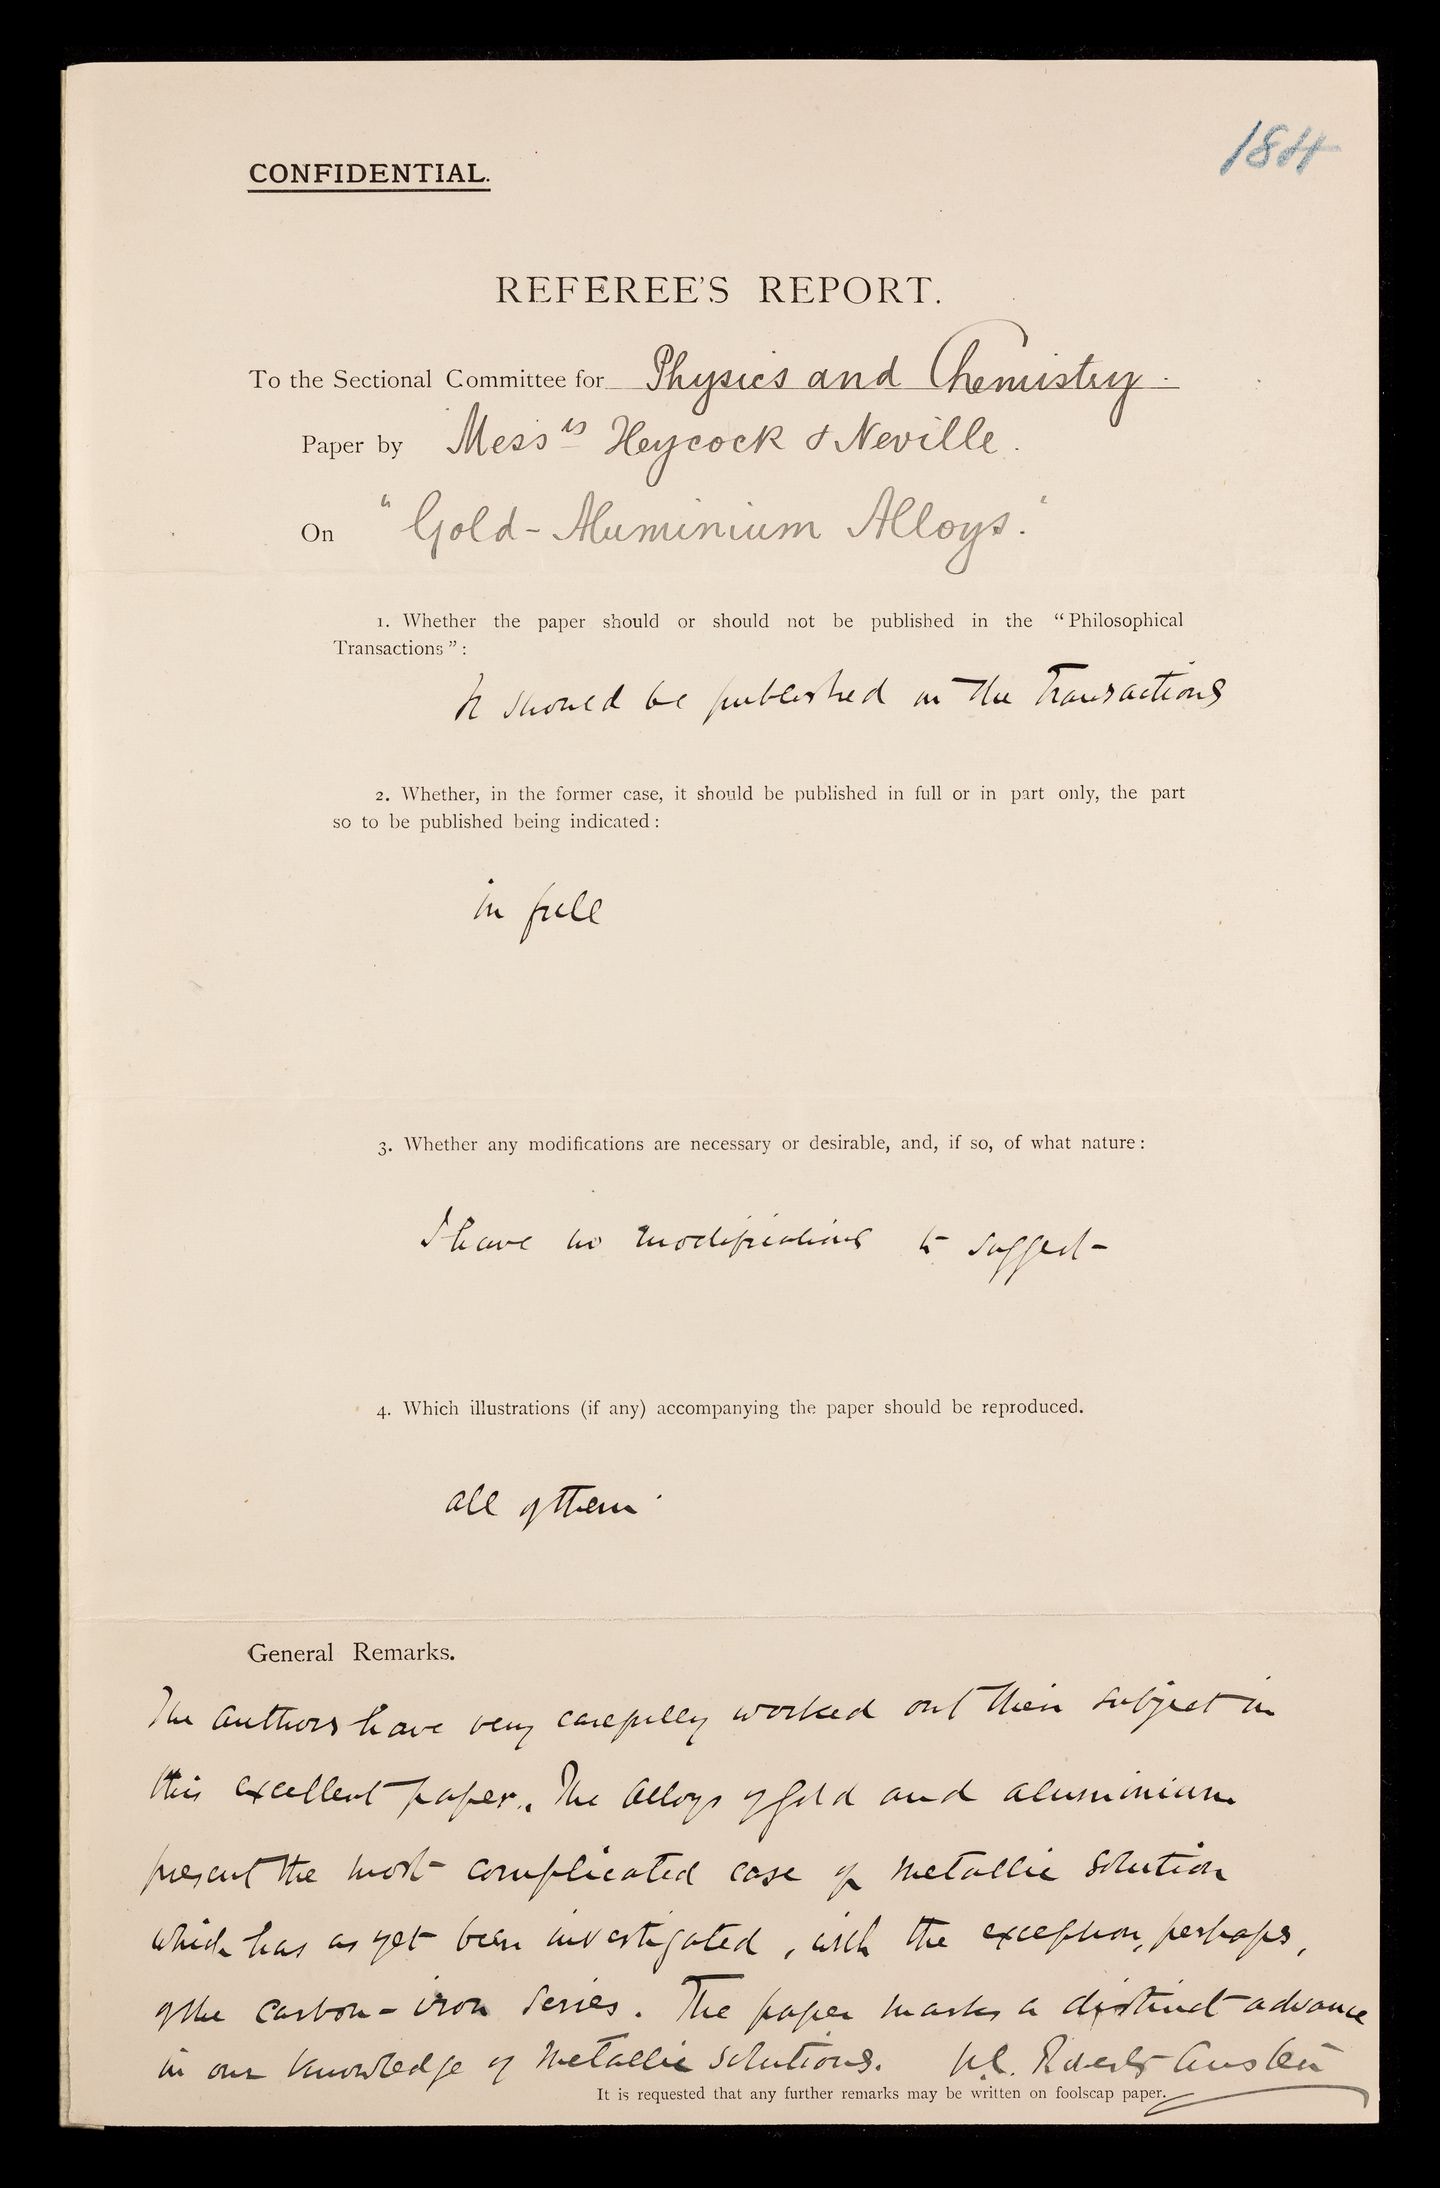 184
CONFIDENTIAL.
REFEREE'S REPORT.
To the Sectional Committee for Physics and Chemistry.
Paper by Mess<sup>rs</sup> Heycock & Neville.
On "Gold-Aluminium Alloys."
1. Whether the paper should or should not be published in the "Philosophical
Transactions":
It should be published in the Transactions
2. Whether, in the former case, it should be published in full or in part only, the part
so to be published being indicated:
in full
3. Whether any modifications are necessary or desirable, and, if so, of what nature:
I have no modifications to suggest
4. Which illustrations (if any) accompanying the paper should be reproduced.
all of them.
General Remarks.
The authors have very carefully worked out their subject in
this excellent paper. The alloys of gold and aluminium
present the most complicated case of metallic solution
which has as yet been investigated, with the exception, perhaps,
of the carbon-iron series. The paper marks a distinct advance
in our knowledge of metallic solutions. W.C. Roberts Austen
It is requested that any further remarks may be written on foolscap paper.